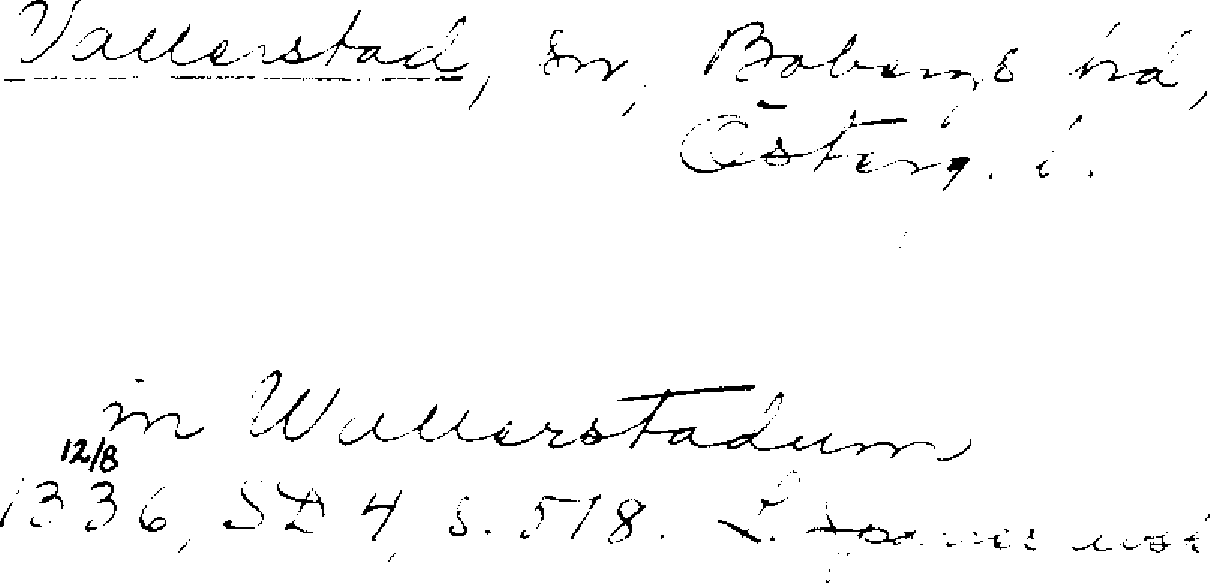 Vallerstad, sn, Bobergs hd,
Österg. l.
in Wallerstadum
12/8
1336, SD 4, s. 518. L.